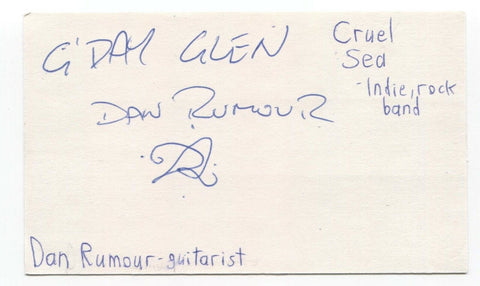 G'DAY GLEN
Cruel
Sea
-Indie, rock
band
DAN RUMOUR
Dan Rumour-guitarist